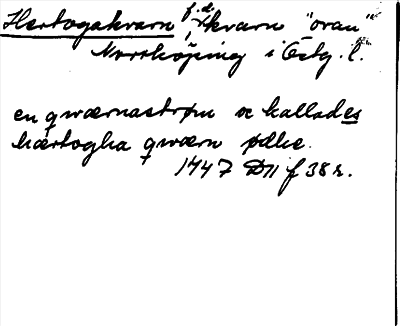 Hertogakvarn, f.d. kvarn "ovan"
Norrköping i Östg. l.
en qwærnastrøm sc kallades
hærtogha qwærn ødhe.
1447 D11 f 38 r.